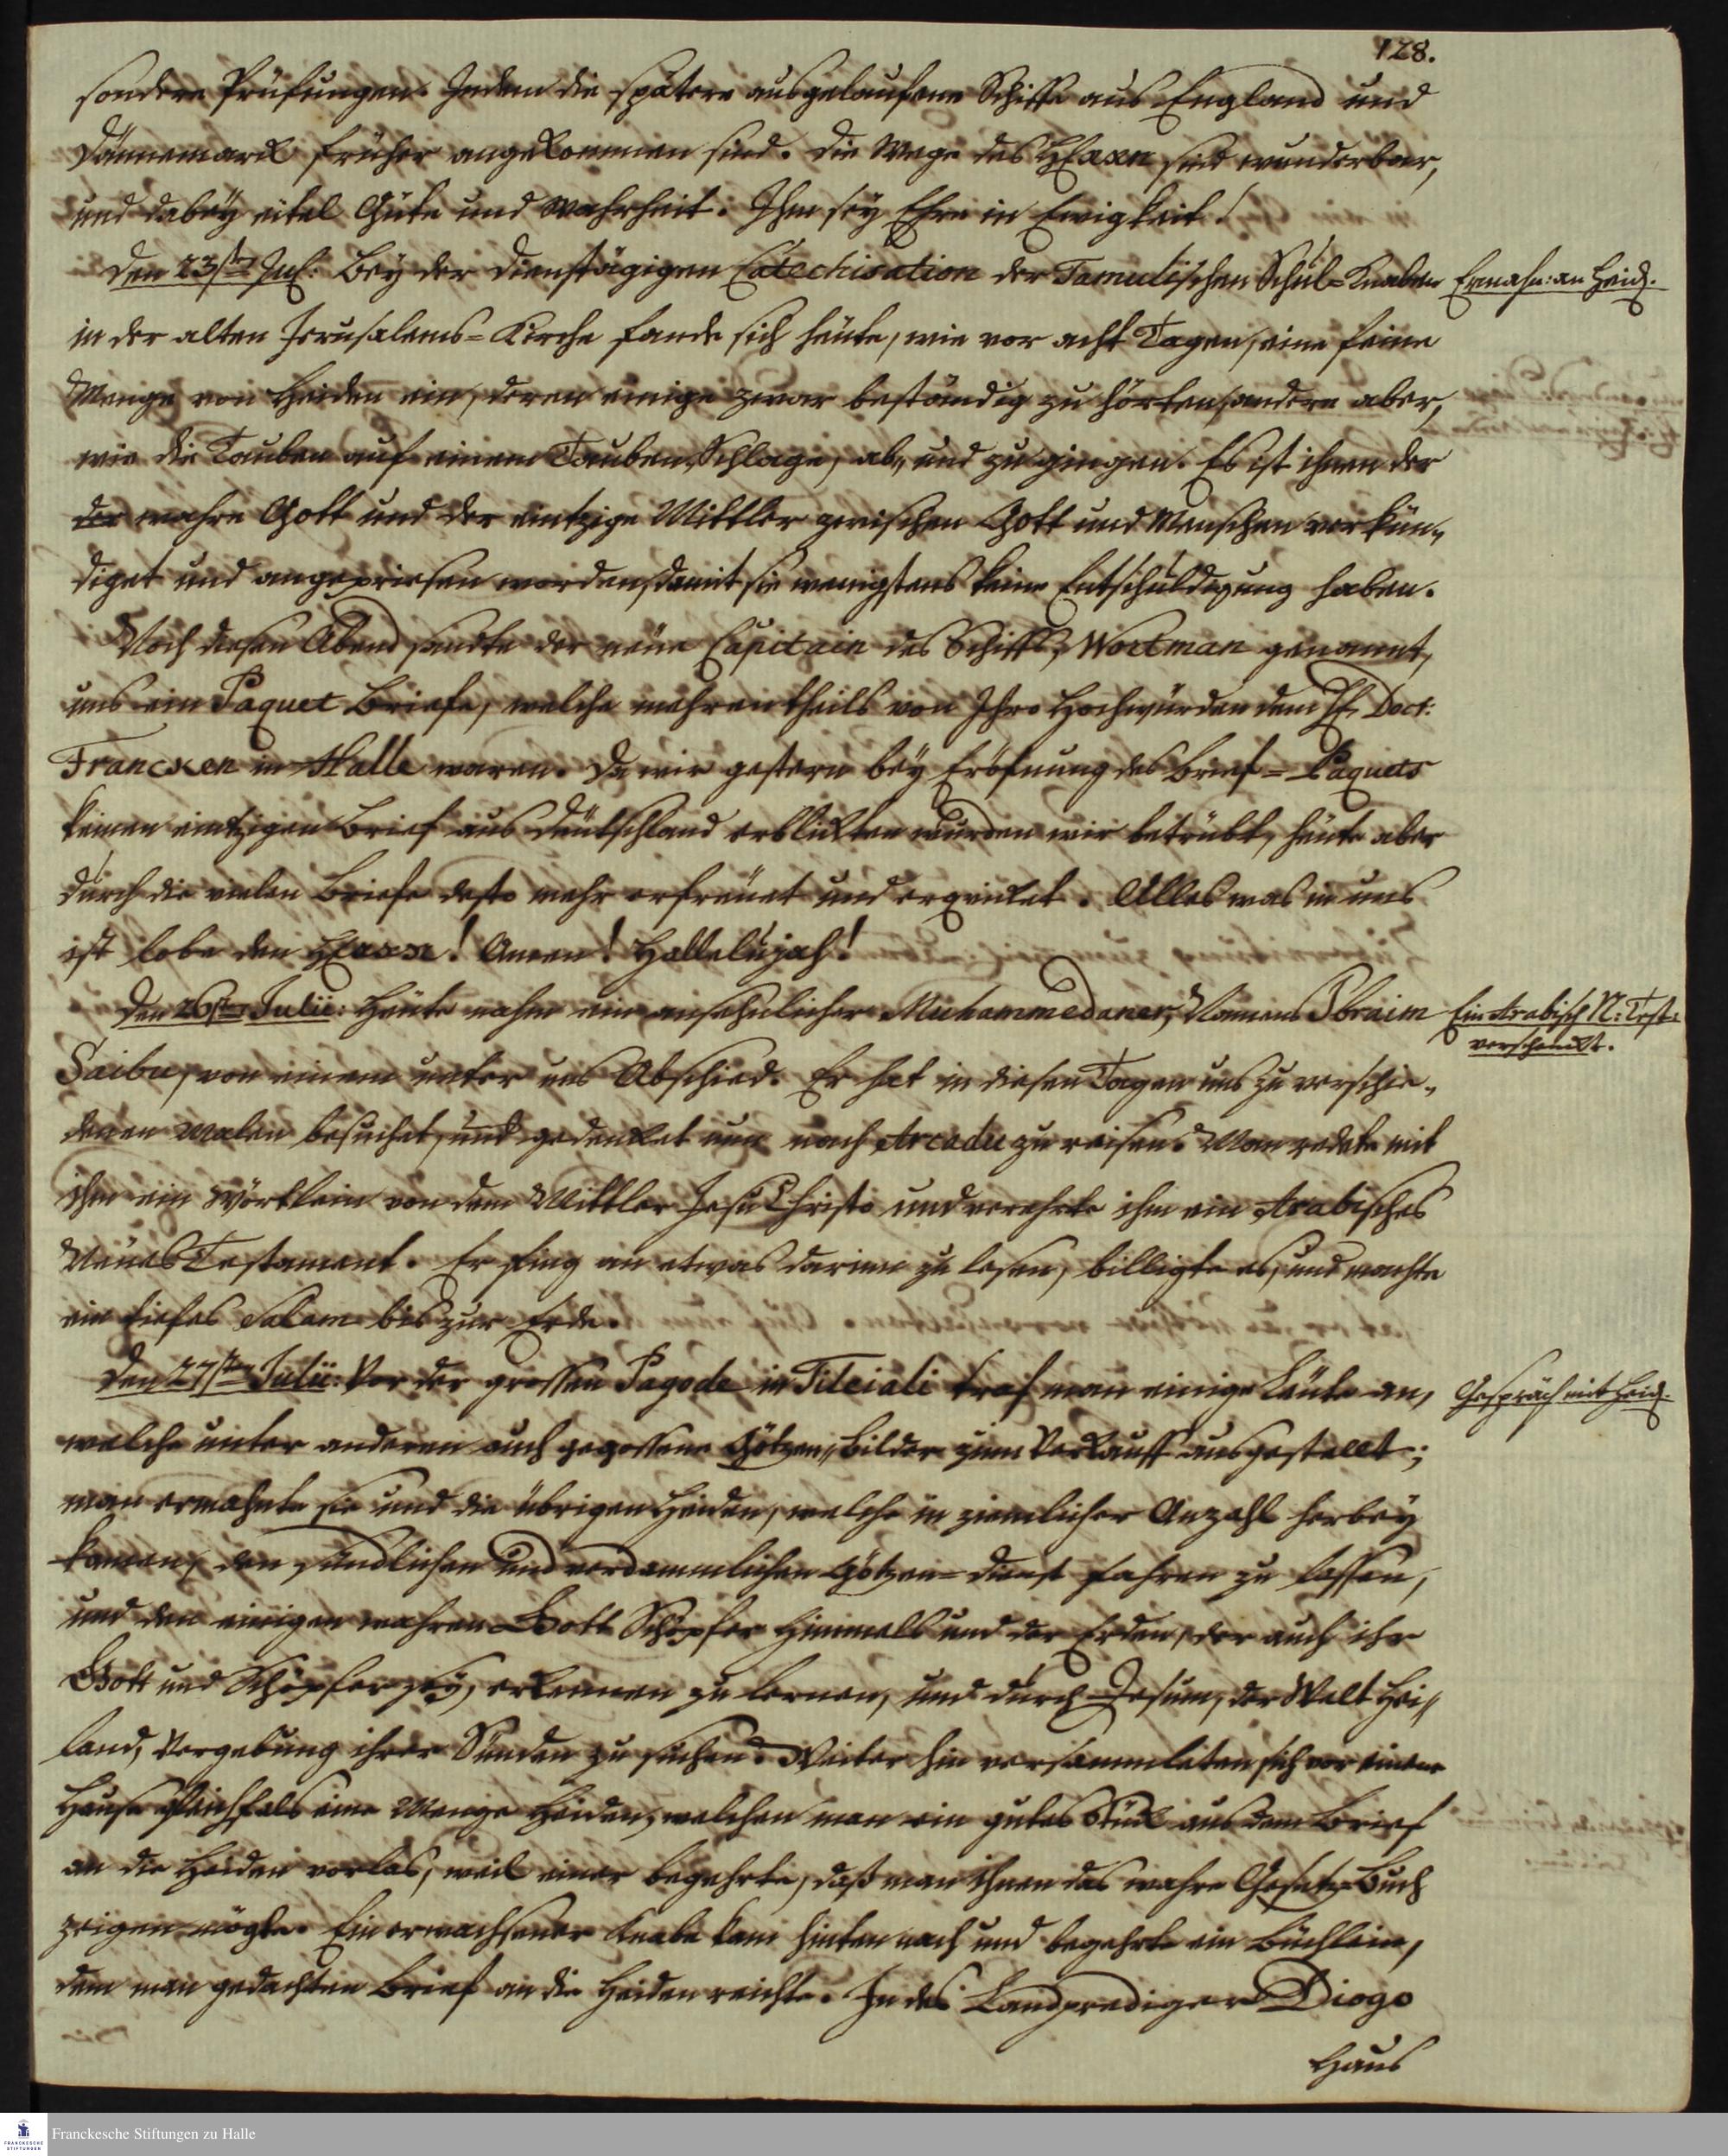 128.
sondere Prüfungen. Indem die spätere ausgelaufene Schiffe aus England und
Dännemarck früher angekommen sind. Die Wege des HErrn sind wunderbar,
und dabey eitel Güte und Wahrheit. Ihm sey Ehre in Ewigkeit!
Den 23sten Jul: Bey der dienstägigen Catechisation der Tamulischen Schul-Knaben
Ermahn: an Heid.
in der alten Jerusalems-Kirche fande sich heute, wie vor acht Tagen, eine feine
Menge von Heiden ein, deren einige zwar beständig zu hörten, andere aber,
wie die Tauben auf einem Tauben-Schlage, ab- und zu gingen. Es ist ihnen der
der wahre Gott und der eintzige Mittler zwischen Gott und Menschen verkün-
diget und angepriesen worden, damit sie wenigstens keine Entschuldigung haben.
Noch diesen Abend sandte der neue Capitain des Schiffs, Wortman genannt,
uns ein Paquet Briefe, welche mehrentheils von Ihro Hochwürden dem H. Doct:
Francken in Halle waren. Da wir gestern bey Eröfnung des Brief-Paquets
keinen eintzigen Brief aus Deutschland erblickten wurden wir betrübt, heute aber
durch die vielen Briefe desto mehr erfreuet und erquicket. Alles was in uns
ist lobe den HErrn! Amen! Hallelujah!
Den 26sten Julii: Heute nahm ein ansehnlicher Muhammedaner, Namens Ibraim
Ein Arabisch N: Test:
verschenckt.
Saibu, von einem unter uns Abschied. Er hat in diesen Tagen uns zu verschie-
denen malen besuchet, und gedencket nun nach Arcadu zu reisen. Man redete mit
ihm ein Wörtlein von dem Mittler Jesu Christo und verehrte ihm ein Arabisches
Neues Testament. Er fing an etwas darinn zu lesen, billigte es, und machte
ein tiefes Salam bis zur Erde.
Den 27sten Julii: Vor der grossen Pagode in Tileiali traf man einige Leute an,
Gespräch mit Heid.
welche unter anderen auch gegossene Götzen-Bilder zum Verkauff ausgestellt;
man ermahnte sie und die übrigen Heiden, welche in ziemlicher Anzahl herbey
kamen, den sündlichen und verdammlichen Götzen-dienst fahren zu lassen,
und den einigen wahren Gott Schöpfer Himmels und der Erden, der auch ihr
Gott und Schöpfer sey, erkennen zu lernen, und durch Jesum, der Welt Hei-
land, Vergebung ihrer Sünden zu suchen. Weiter hin versammleten sich vor einem
Hause gleichfals eine Menge Heiden, welchen man ein gutes Stück aus dem Brief
an die Heiden vorlas, weil einer begehrte, daß man ihnen das wahre Gesetz-Buch
zeigen mögte. Ein erwachsener Knabe kam hinten nach und begehrte ein Büchlein,
dem man gedachten Brief an die Heiden reichte. In des Landprediger Diogo
Haus
Franckesche Stiftungen zu Halle